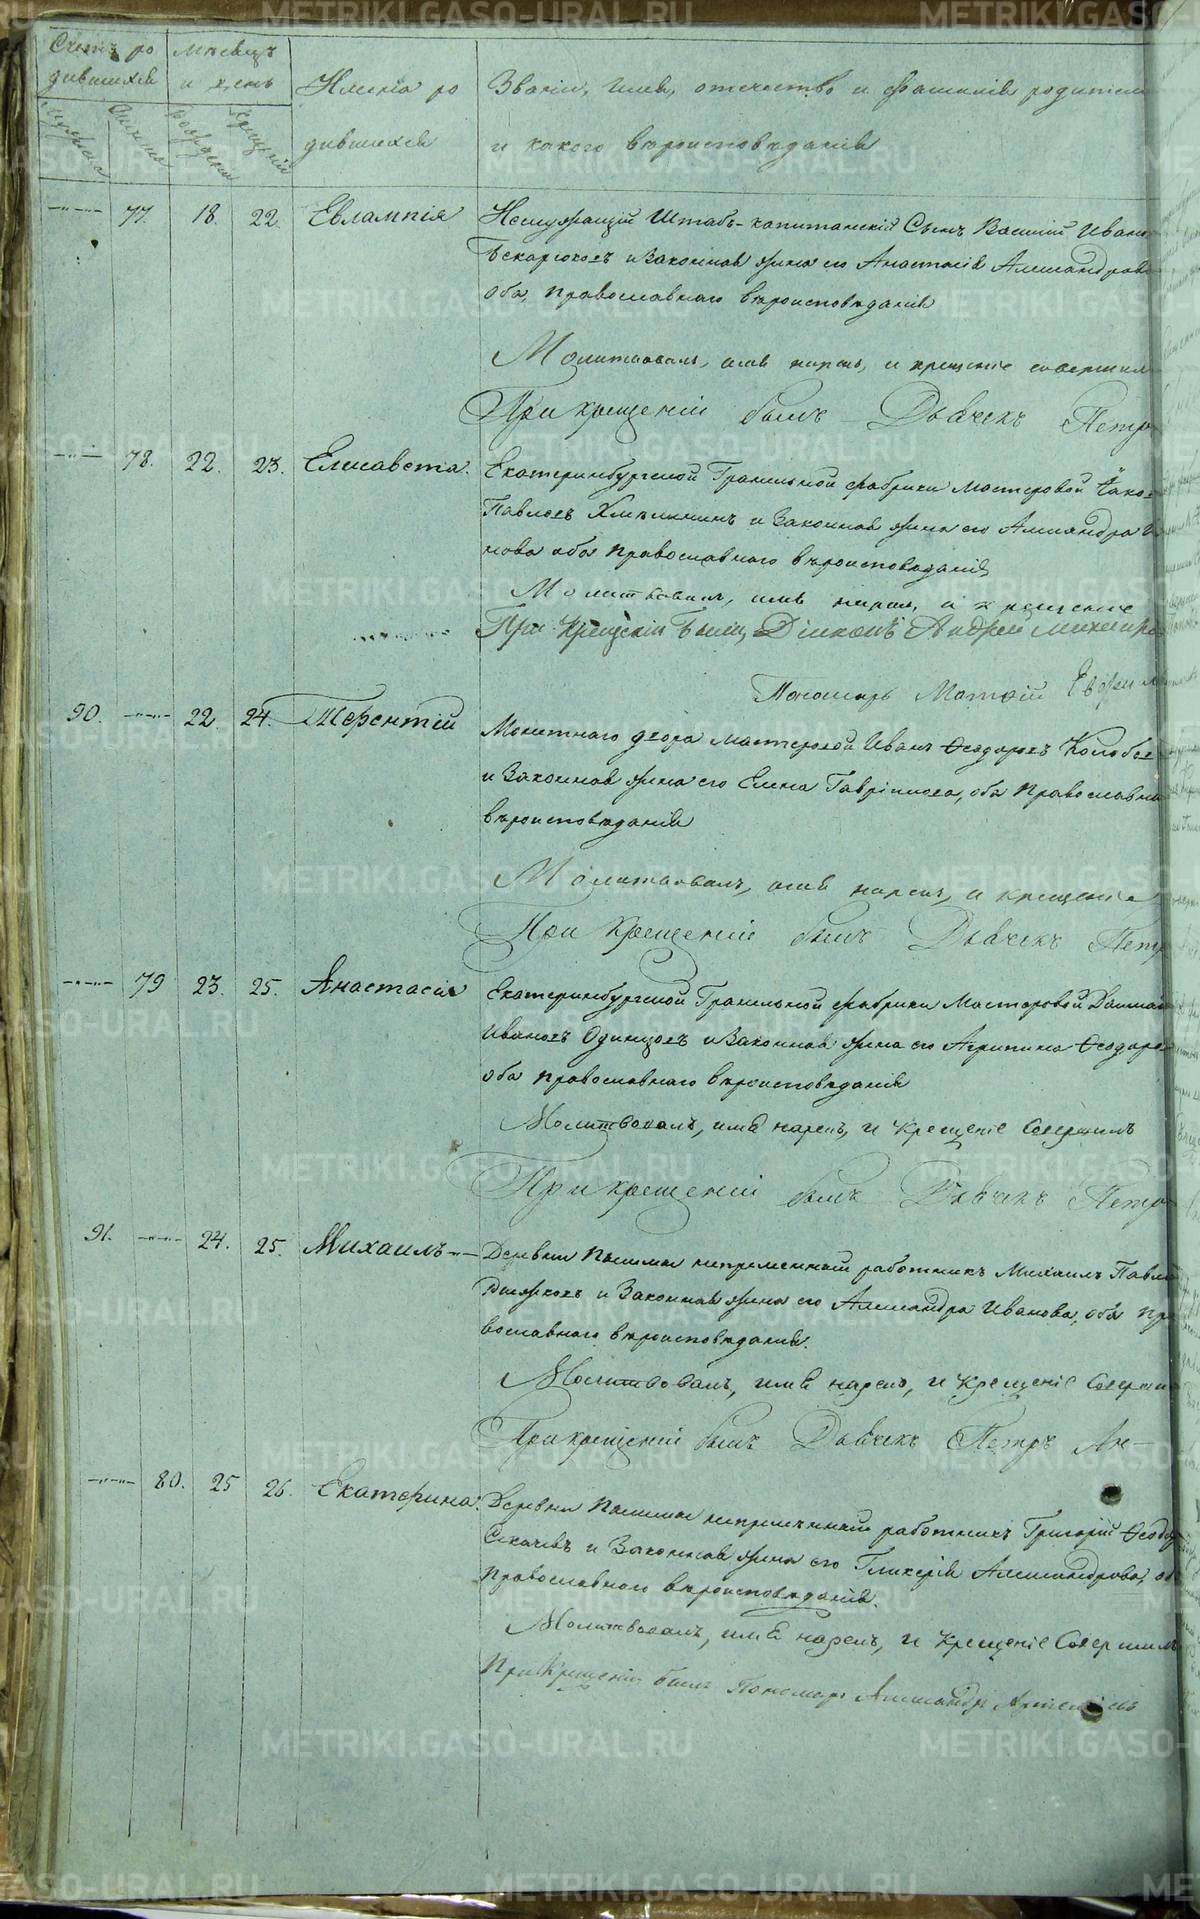 Счетъ ро
дившихся
Мужеска
Женска
Месяцъ
и день
Рожденія
Крещенія
Имена ро
дившихся
Званіе, имя, отечество и фамилія родителе
и какого вѣроисповѣданія
77. 18 22 Евлампія Неслужащій Штабъ-капитанскій Сынъ Василій Ивано
и Законная жена его Анастасія Александров
оба православнаго вѣроисповѣданія
Молитвовалъ, имя нарекъ, и крещеніе совершил
При крещеніи былъ Дьячекъ Петръ
78. 22. 23. Елисавета. Екатеринбургской Гранильной фабрики Мастеровой Іако
Павловъ и Законная жена его Александра
нова оба православнаго вѣроисповѣданія
Молитвовалъ, имя нарекъ, и крещеніе
При Крещеніи были, Діаконъ Андрей
Пономарь Матфій
90. 22. 24. Терентій Монетнаго двора мастеровой Иванъ Ѳеодоровъ Колобов
и Законная жена его Елена Гаврилова, оба Православна
вѣроисповѣданія
Молитвовалъ, имя нарекъ, и крещеніе
При крещеніи былъ Дьячекъ Петръ
79 23. 25. Анастасія Екатеринбургской Гранильной фабрики Мастеровой
Ивановъ Одинцовъ и Законная жена его Агрипина Ѳеодоро
оба православнаго вѣроисповѣданія
Молитвовалъ, имя нарекъ, и Крещеніе Совершилъ
При крещеніи былъ Дьячекъ Петръ
91. 24. 25. Михаилъ Деревни Пышмы непременный работникъ Михаилъ Павло
и Законная жена его Александра Иванова, оба пра
вославнаго вѣроисповѣданія.
Молитвовалъ, имя нарекъ, и Крещеніе Соверши
При крещеніи былъ Дьячекъ Петръ Ан-
80. 25 26. Екатерина. Деревни Пышмы непременный работникъ Григорій Ѳеодо
и Законная жена его Гликерія Александрова, об
православнаго вѣроисповѣданія.
Молитвовалъ, имя нарекъ, и Крещеніе Совершилъ
При Крещеніи былъ Пономарь Александръ